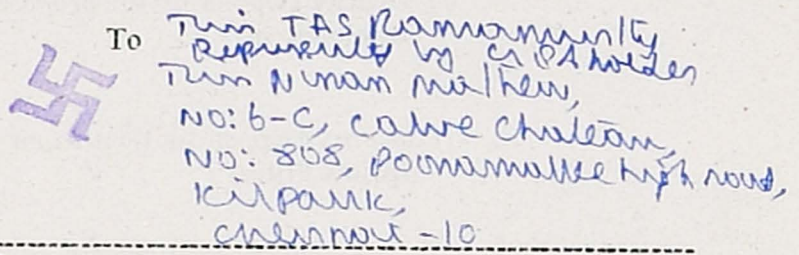 To Thiru TAS Ramamurthy
Represented by GPA holder
Thiru Ninan Mathew,
NO: 6-C, Calve Chateau,
NO: 808, Poonamallee high road,
Kilpauk,
Chennai - 10